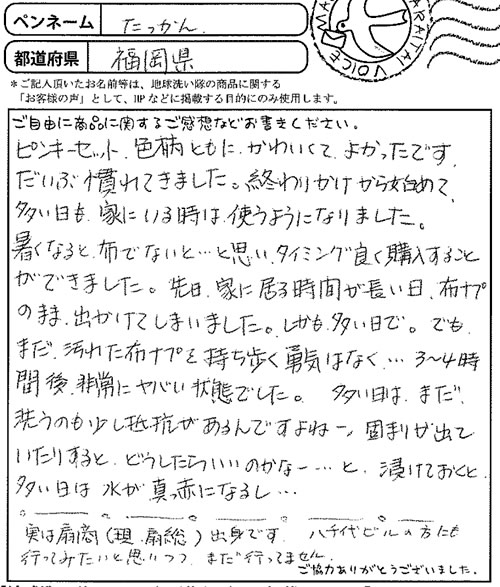 ペンネーム たっかん.
都道府県 福岡県
＊ご記入頂いたお名前等は、地球洗い隊の商品に関する
「お客様の声」として、HPなどに掲載する目的にのみ使用します。
ご自由に商品に関するご感想などお書きください。
ピンキーセット、色柄ともに、かわいくて、よかったです、
だいぶ慣れてきました。終わりかけから始めて、
多い日も、家にいる時は、使うようになりました。
暑くなると、布でないと…と思い、タイミング良く購入すること
ができました。先日、家に居る時間が長い日、布ナプ
のまま、出かけてしまいました。しかも、多い日で。でも、
まだ、汚れた布ナプを持ち歩く勇気はなく、… 3〜4時
間後、非常にヤバい状態でした。 多い日は、まだ、
洗うのも少し抵抗があるんですよねー、固まりが出て
いたりすると、どうしたらいいのかなー…と、浸けておくと、
多い日は水が真っ赤になるし…
実は扇商(現、扇総)出身です。ハチ代ビルの方にも
行ってみたいと思いつつ、まだ行ってません。
ご協力ありがとうございました。
VOICE